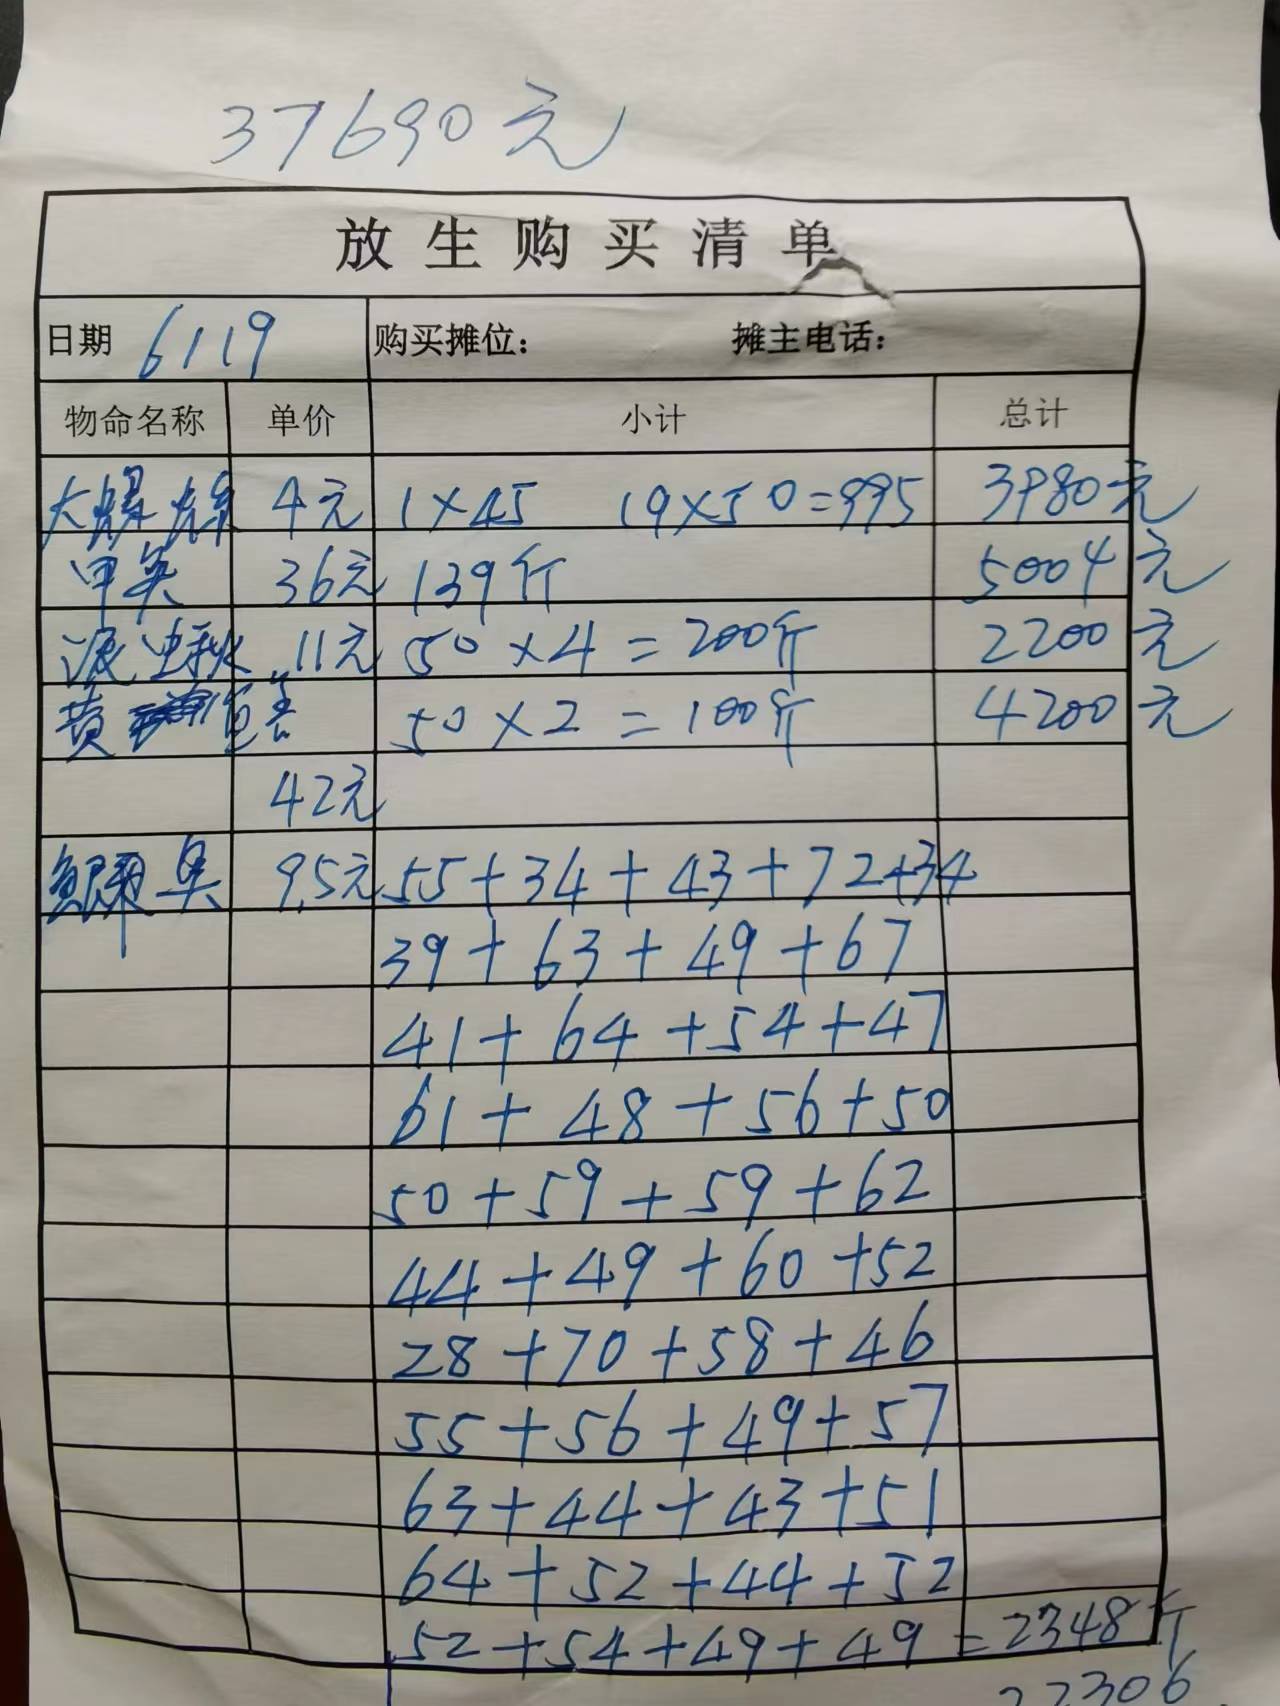 37690元
放生购买清单
日期 6/19 购买摊位: 摊主电话:
物命名称 单价 小计 总计
大螺丝 4元 1×45 19×50=995 3980元
甲鱼 36元 139斤 5004元
泥鳅 11元 50×4=200斤 2200元
黄鳝 50×2=100斤 4200元
42元
鲫鱼 9.5元 55+34+43+72+34
39+63+49+67
41+64+54+47
61+48+56+50
50+59+59+62
44+49+60+52
28+70+58+46
55+56+49+57
63+44+43+51
64+52+44+52
52+54+49+49=2348斤
22306